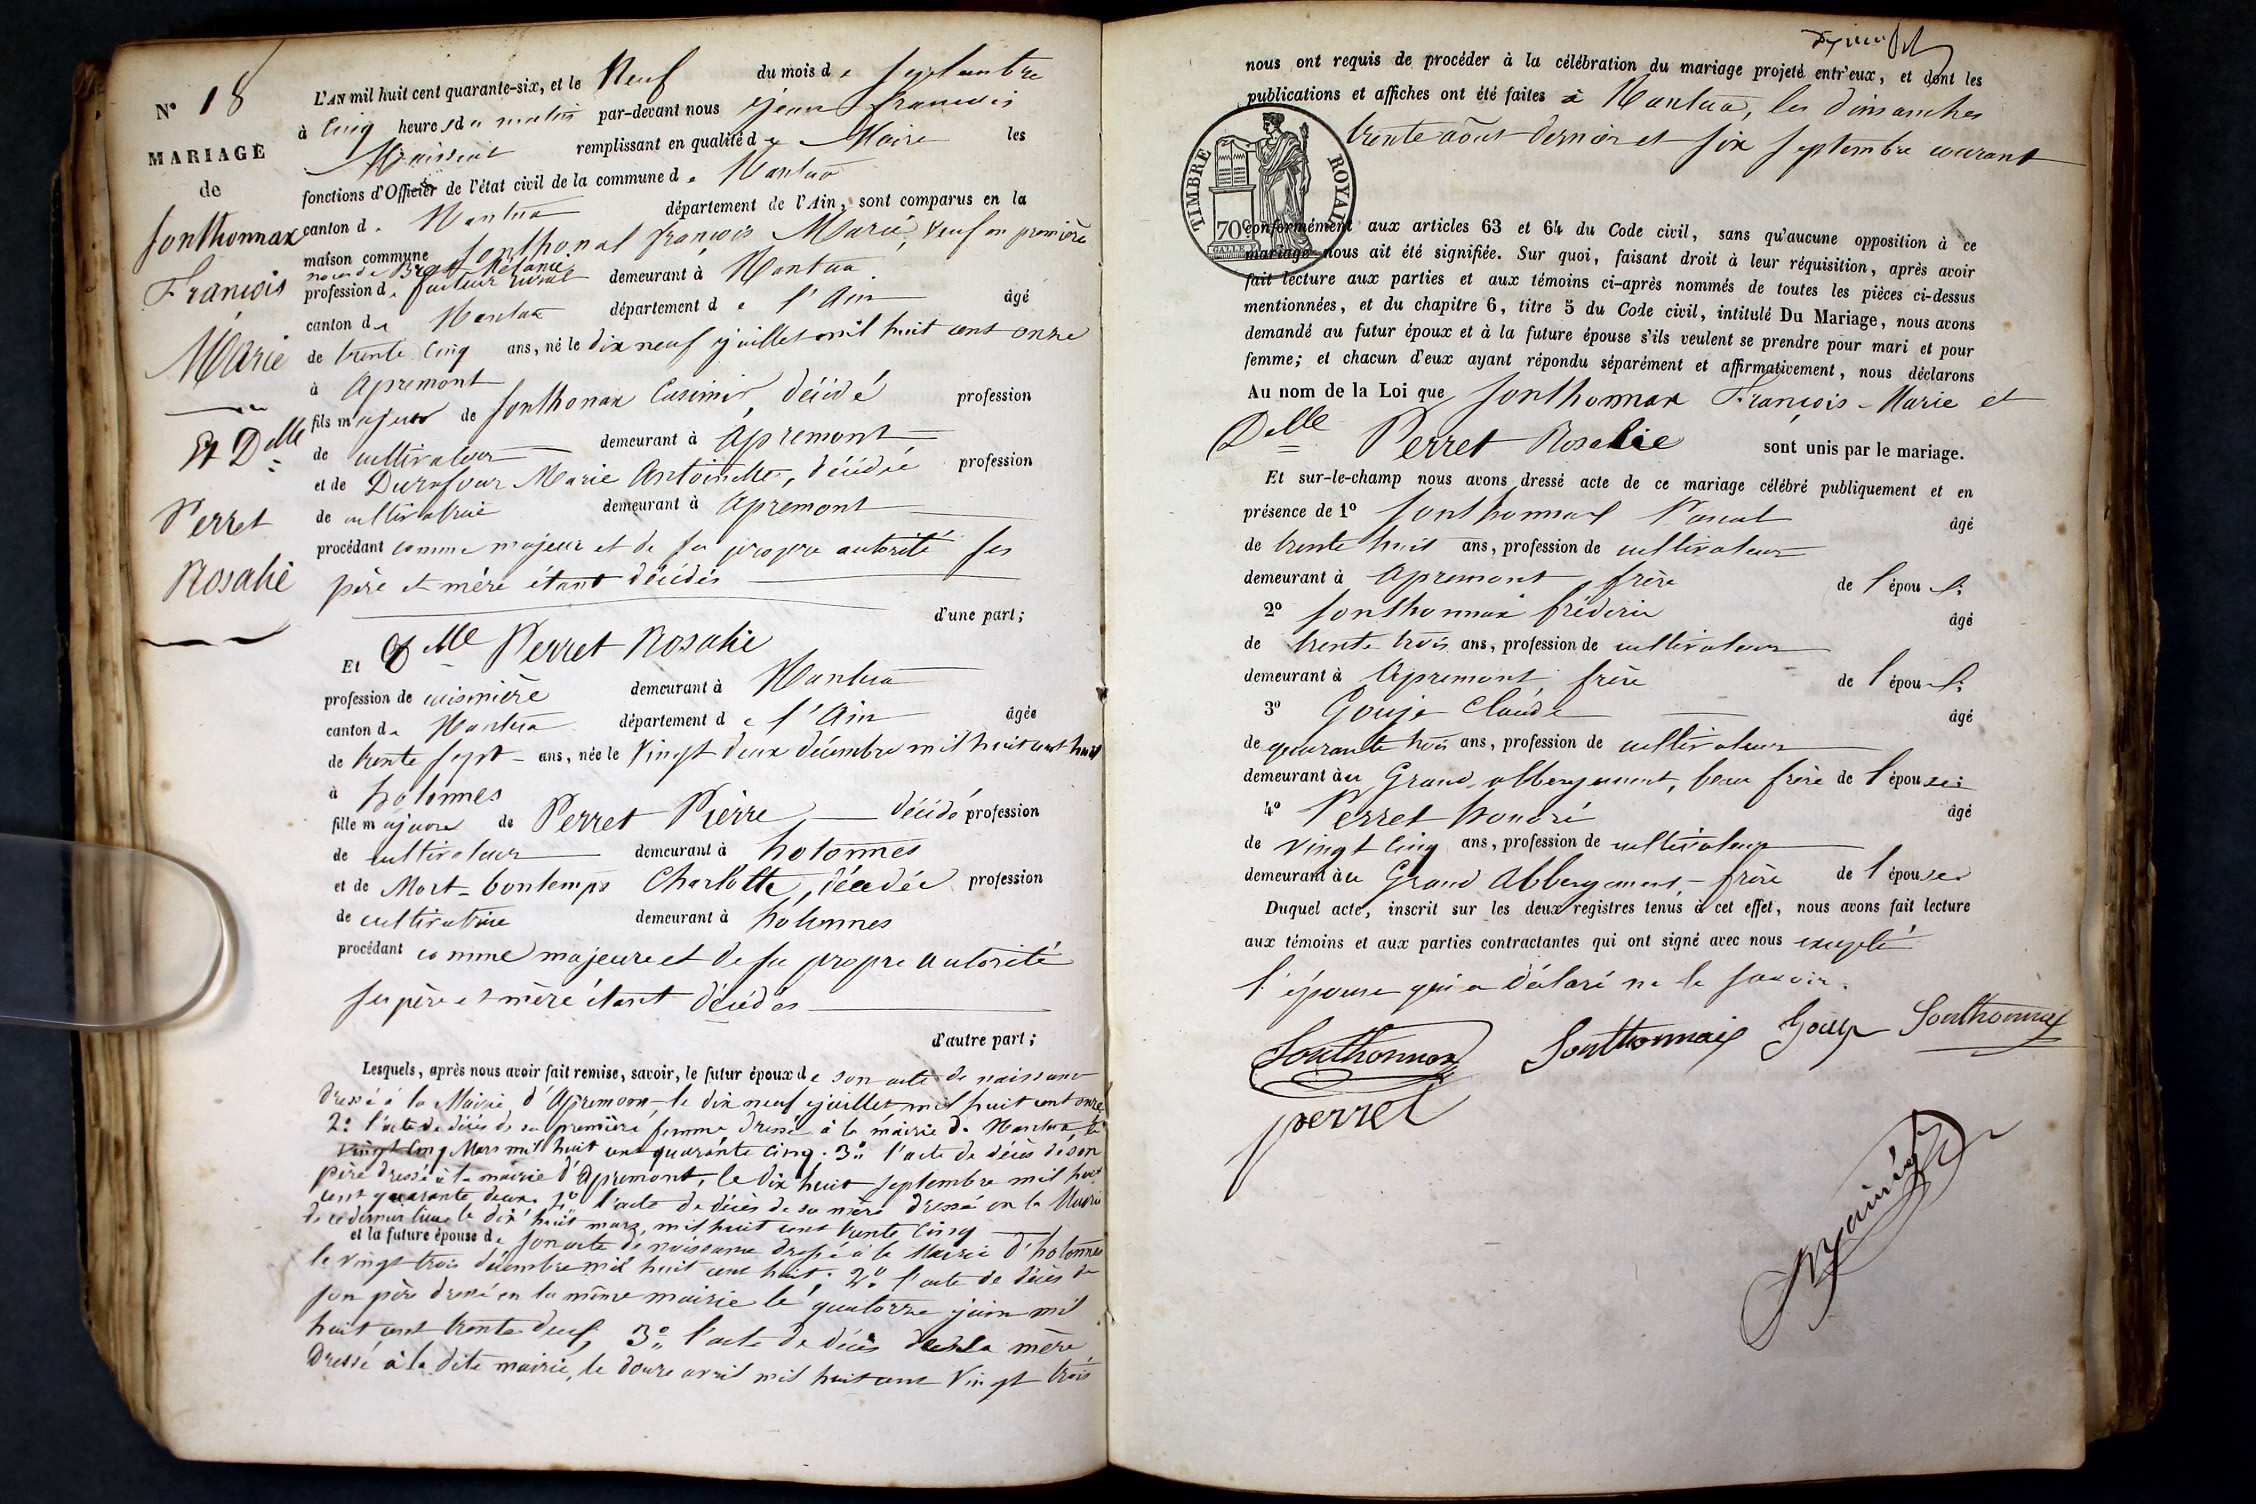 N° 18
MARIAGE
de
Sonthonnax
François
Marie
Et Delle
Perret
Rosalie
L'AN mil huit cent quarante-six, et le Neuf du mois de Septembre
à Cinq heures du matin par-devant nous jean françois
remplissant en qualité de Maire les
fonctions d'Officier de l'état civil de la commune de Nantua
canton de Nantua département de l'Ain, sont comparus en la
maison commune Sonthonax françois Marie, Veuf en première
noce de Mélanie
profession de facteur rural demeurant à Nantua
canton de Nantua département de l'Ain âgé
de trente cinq ans, né le dix neuf juillet mil huit cent onze
à Apremont
fils majeur de Sonthonax Casimir, décédé profession
de cultivateur demeurant à Apremont
et de Durafour Marie Antoinette, décédée profession
de cultivatrice demeurant à Apremont
procédant comme majeur et de sa propre autorité ses
père et mère étant décédés
d'une part;
Et Delle Perret Rosalie
profession de cuisinière demeurant à Nantua
canton de Nantua département de l'Ain âgée
de trente sept ans, née le Vingt deux décembre mil huit cent huit
à hotonnes
fille majeure de Perret Pierre décédé profession
de cultivateur demeurant à hotonnes
et de Mort-bontemps Charlotte, décédée profession
de cultivatrice demeurant à hotonnes
procédant comme majeure et de sa propre autorité
ses père et mère étant décédés
d'autre part;
Lesquels, après nous avoir fait remise, savoir, le futur époux de son acte de naissance
dressé à la Mairie d'Apremont le dix neuf juillet mil huit cent onze
2° l'acte de décès de sa première femme dressé à la mairie de Nantua le
vingt cinq Mars mil huit cent quarante cinq. 3° l'acte de décès de son
père dressé à la mairie d'Apremont, le dix huit septembre mil huit
cent quarante deux. 4° l'acte de décès de sa mère dressé en la Mairie
de ce dernier lieu le dix huit mars, mil huit cent trente cinq
et la future épouse de son acte de naissance dressé à la Mairie d'hotonnes
le vingt trois décembre mil huit cent huit; 2° l'acte de décès de
son père dressé en la même mairie le quatorze juin mil
huit cent trente deux, 3° l'acte de décès de sa mère
dressé à la dite mairie, le douze avril mil huit cent Vingt trois
nous ont requis de procéder à la célébration du mariage projeté entr'eux, et dont les
publications et affiches ont été faites à Nantua, les dimanches
trente août dernier et six septembre courant
TIMBRE ROYAL
70c
conformément aux articles 63 et 64 du Code civil, sans qu'aucune opposition à ce
mariage nous ait été signifiée. Sur quoi, faisant droit à leur réquisition, après avoir
fait lecture aux parties et aux témoins ci-après nommés de toutes les pièces ci-dessus
mentionnées, et du chapitre 6, titre 5 du Code civil, intitulé Du Mariage, nous avons
demandé au futur époux et à la future épouse s'ils veulent se prendre pour mari et pour
femme; et chacun d'eux ayant répondu séparément et affirmativement, nous déclarons
Au nom de la Loi que Sonthonnax François-Marie et
Delle Perret Rosalie sont unis par le mariage.
Et sur-le-champ nous avons dressé acte de ce mariage célébré publiquement et en
présence de 1° Sonthonnax Pascal âgé
de trente huit ans, profession de cultivateur
demeurant à Apremont frère de l'époux
2° Sonthonnax fréderic âgé
de trente trois ans, profession de cultivateur
demeurant à Apremont, frère de l'époux
3° Gouje Claude âgé
de quarante trois ans, profession de cultivateur
demeurant au Grand-abbergement, beau frère de l'épouse
4° Perret honoré âgé
de vingt cinq ans, profession de cultivateur
demeurant au Grand Abbergement - frère de l'épouse
Duquel acte, inscrit sur les deux registres tenus à cet effet, nous avons fait lecture
aux témoins et aux parties contractantes qui ont signé avec nous excepté
l'épouse qui a déclaré ne le savoir.
Sonthonnax Sonthonnax Gouje Sonthonnax
perret